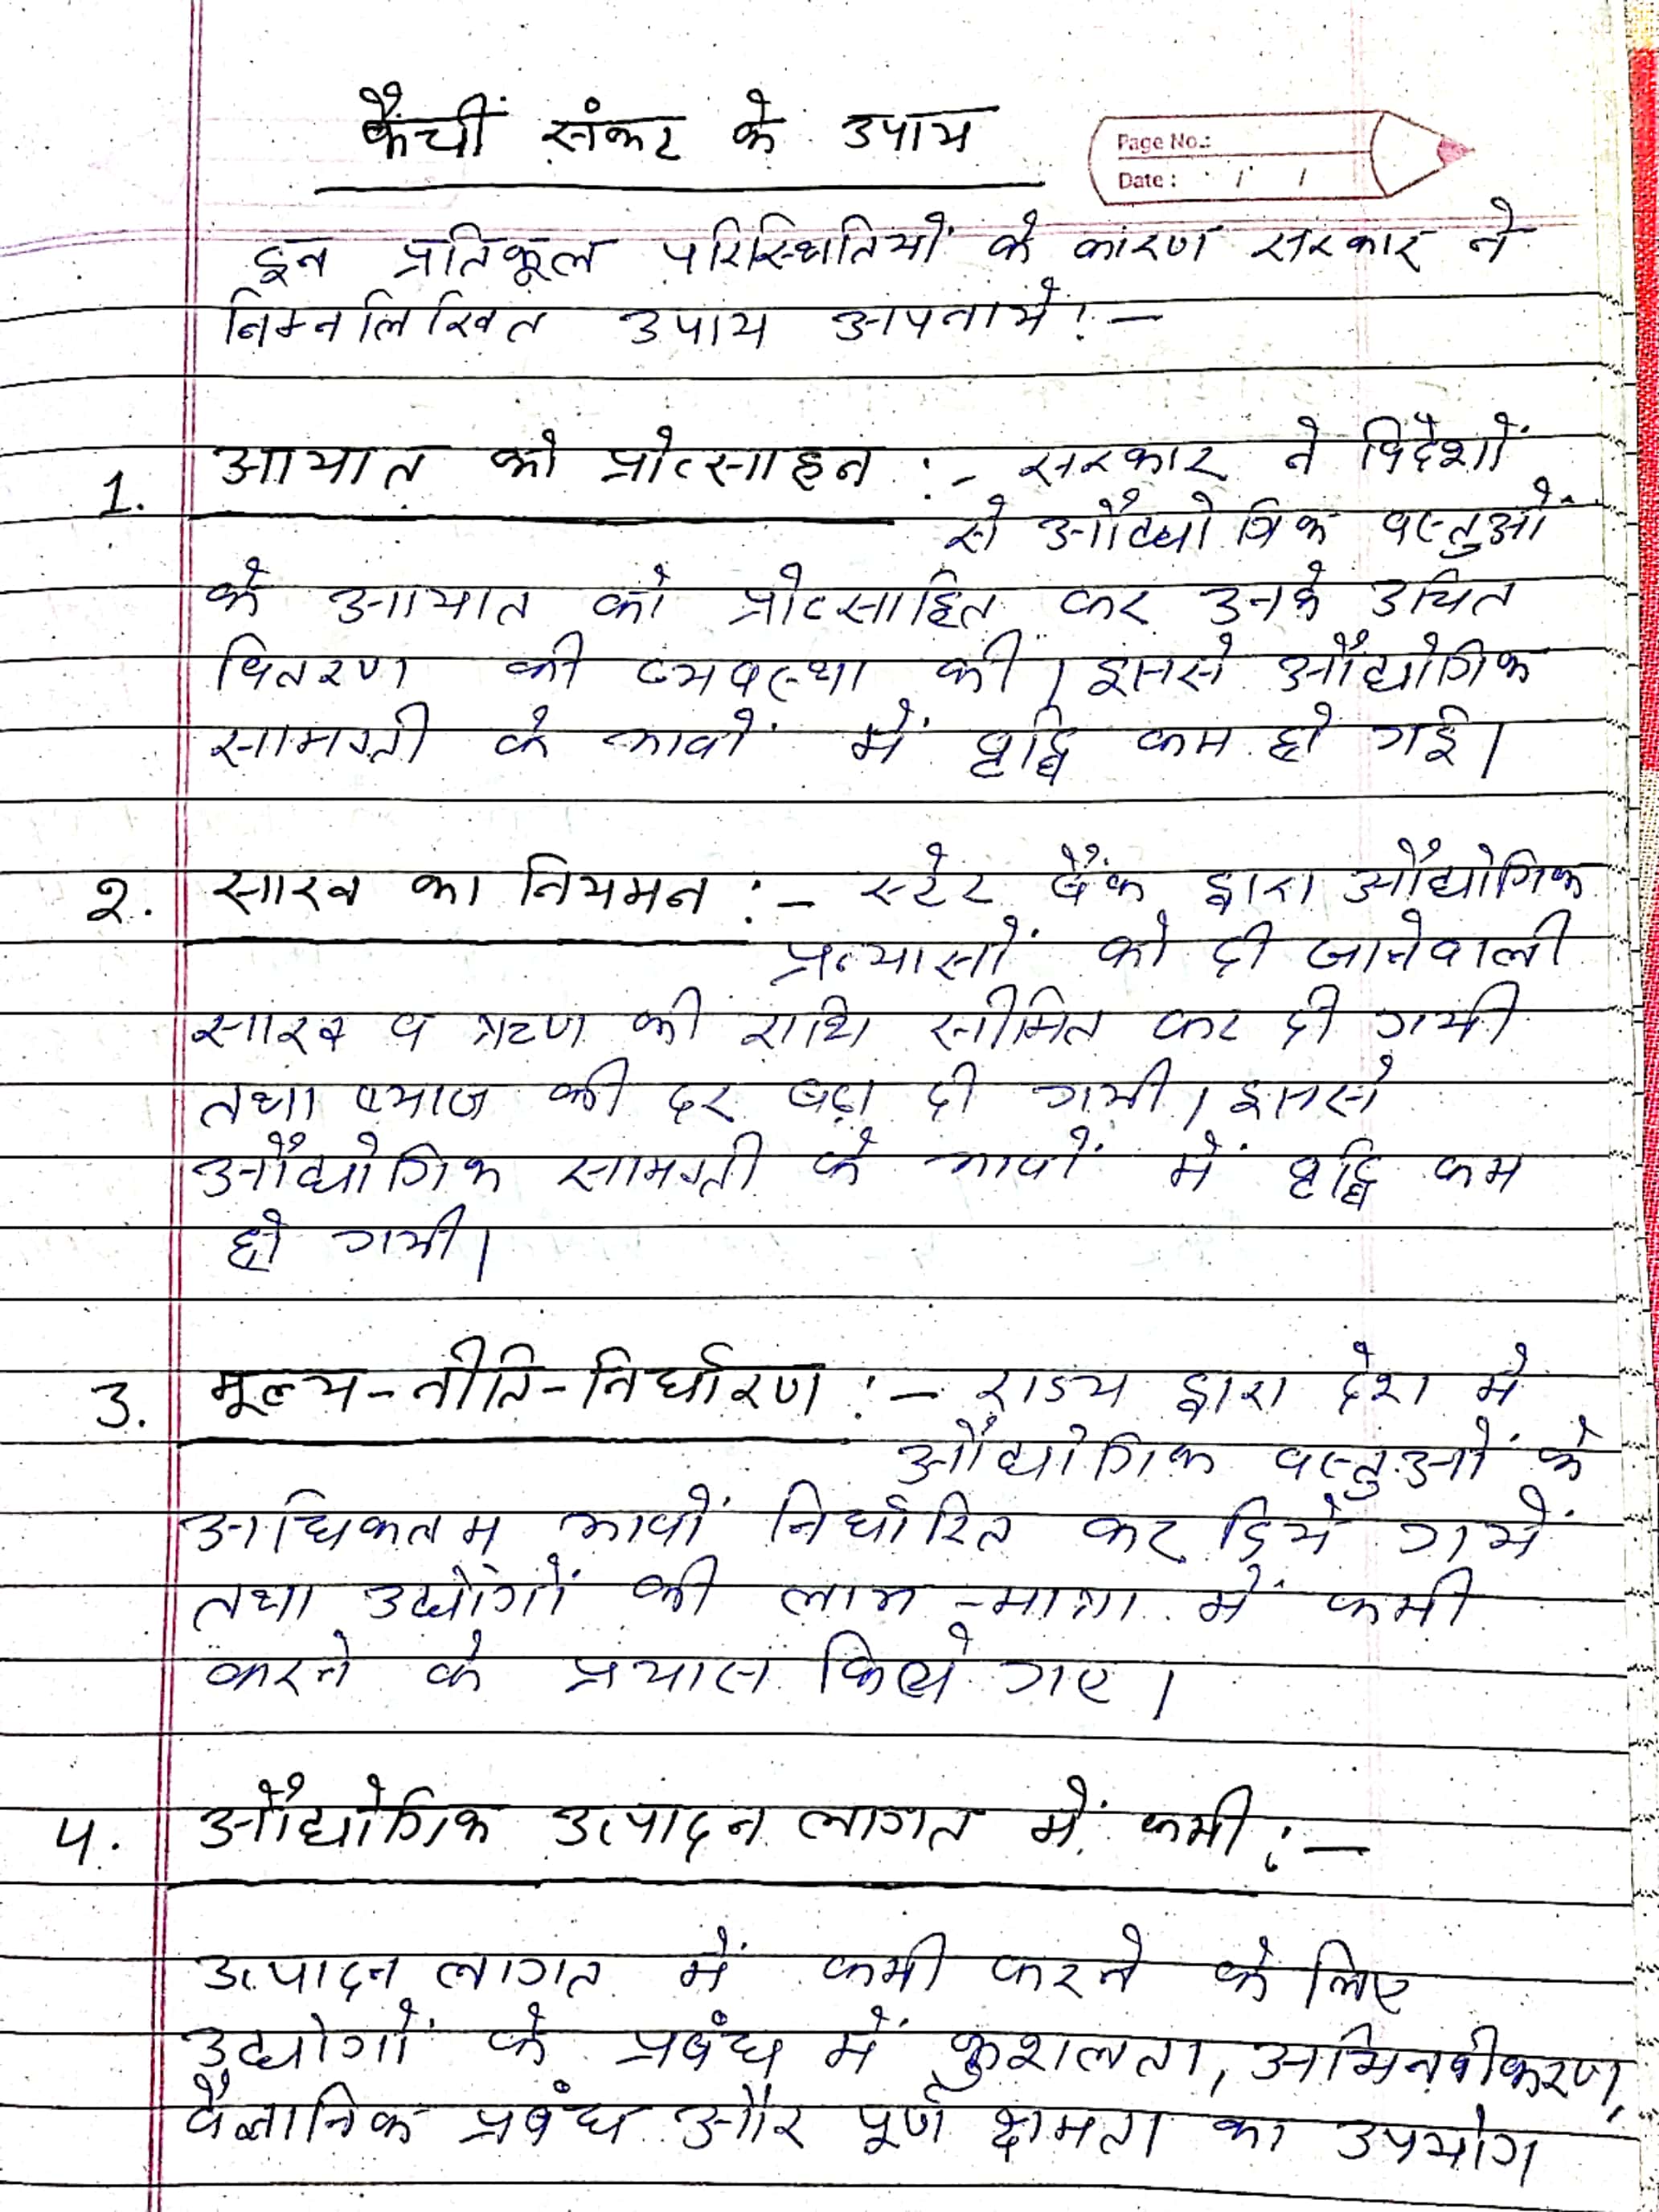 कैंची संकट के उपाय
Page No.:
Date: / /
इन प्रतिकूल परिस्थितियों के कारण सरकार ने
निम्नलिखित उपाय अपनाये:-
1. आयात को प्रोत्साहन :- सरकार ने विदेशों
से औद्योगिक वस्तुओं
के आयात को प्रोत्साहित कर उनके उचित
वितरण की व्यवस्था की। इससे औद्योगिक
सामग्री के भावों में वृद्धि कम हो गई।
2. साख का नियमन :- स्टेट बैंक द्वारा औद्योगिक
प्रन्यासों को दी जानेवाली
साख व ऋण की राशि सीमित कर दी गयी
तथा ब्याज की दर बढ़ा दी गयी। इससे
औद्योगिक सामग्री के भावों में वृद्धि कम
हो गयी।
3. मूल्य-नीति-निर्धारण :- राज्य द्वारा देश में
औद्योगिक वस्तुओं के
अधिकतम भावों निर्धारित कर दिये गयें
तथा उद्योगों की लाभ-मात्रा में कमी
करने के प्रयास किये गए।
4. औद्योगिक उत्पादन लागत में कमी :-
उत्पादन लागत में कमी करने के लिए
उद्योगों के प्रबंध में कुशलता, अभिनवीकरण,
वैज्ञानिक प्रबंध और पूर्ण क्षमता का उपयोग